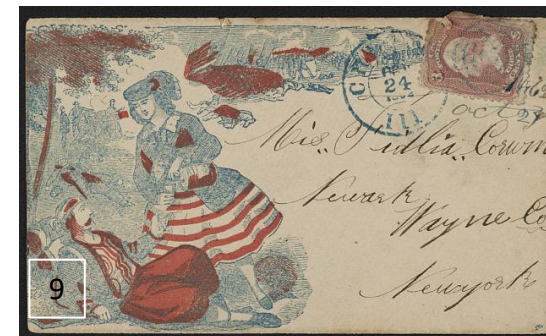 24
Ill
1862
Oct 23
Miss Corwin
Newark
Wayne Co
Newyork
9